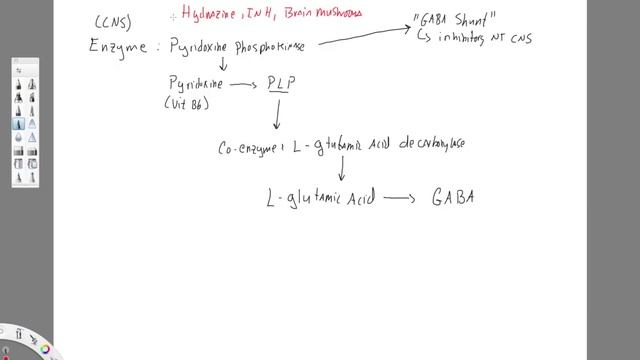 (CNS)
Hydrazine, INH, Brain mushrooms
"GABA Shunt"
Enzyme : Pyridoxine phosphokinase
↳ inhibitory NT CNS
Pyridoxine → PLP
(Vit B6)
Co-enzyme: L-glutamic Acid decarboxylase
L-glutamic Acid → GABA